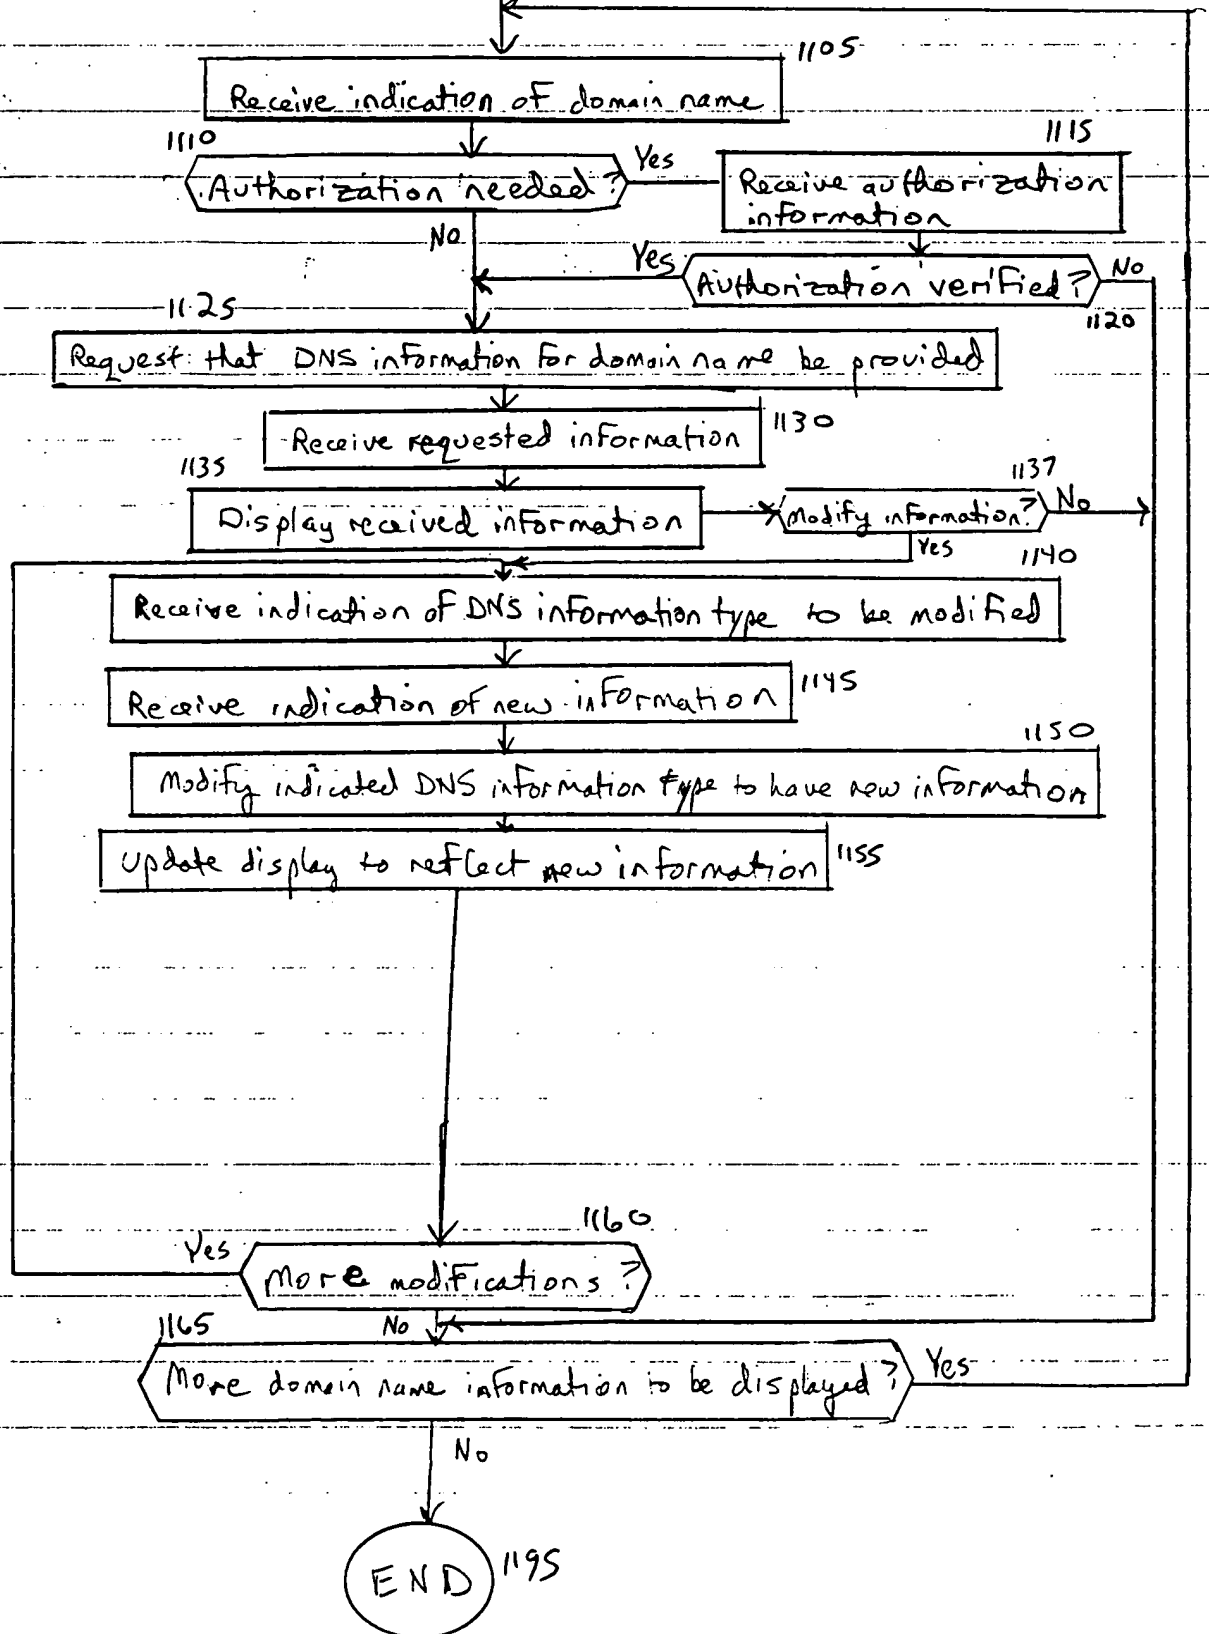 1105
Receive indication of domain name
1110
Authorization needed?
Yes
1115
Receive authorization
information
No
Yes
Authorization verified?
No
1120
1125
Request that DNS information for domain name be provided
Receive requested information
1130
1135
Display received information
1137
Modify information?
No
Yes
1140
Receive indication of DNS information type to be modified
Receive indication of new information
1145
1150
Modify indicated DNS information type to have new information
Update display to reflect new information
1155
1160
Yes
More modifications?
No
1165
More domain name information to be displayed?
Yes
No
END
1195